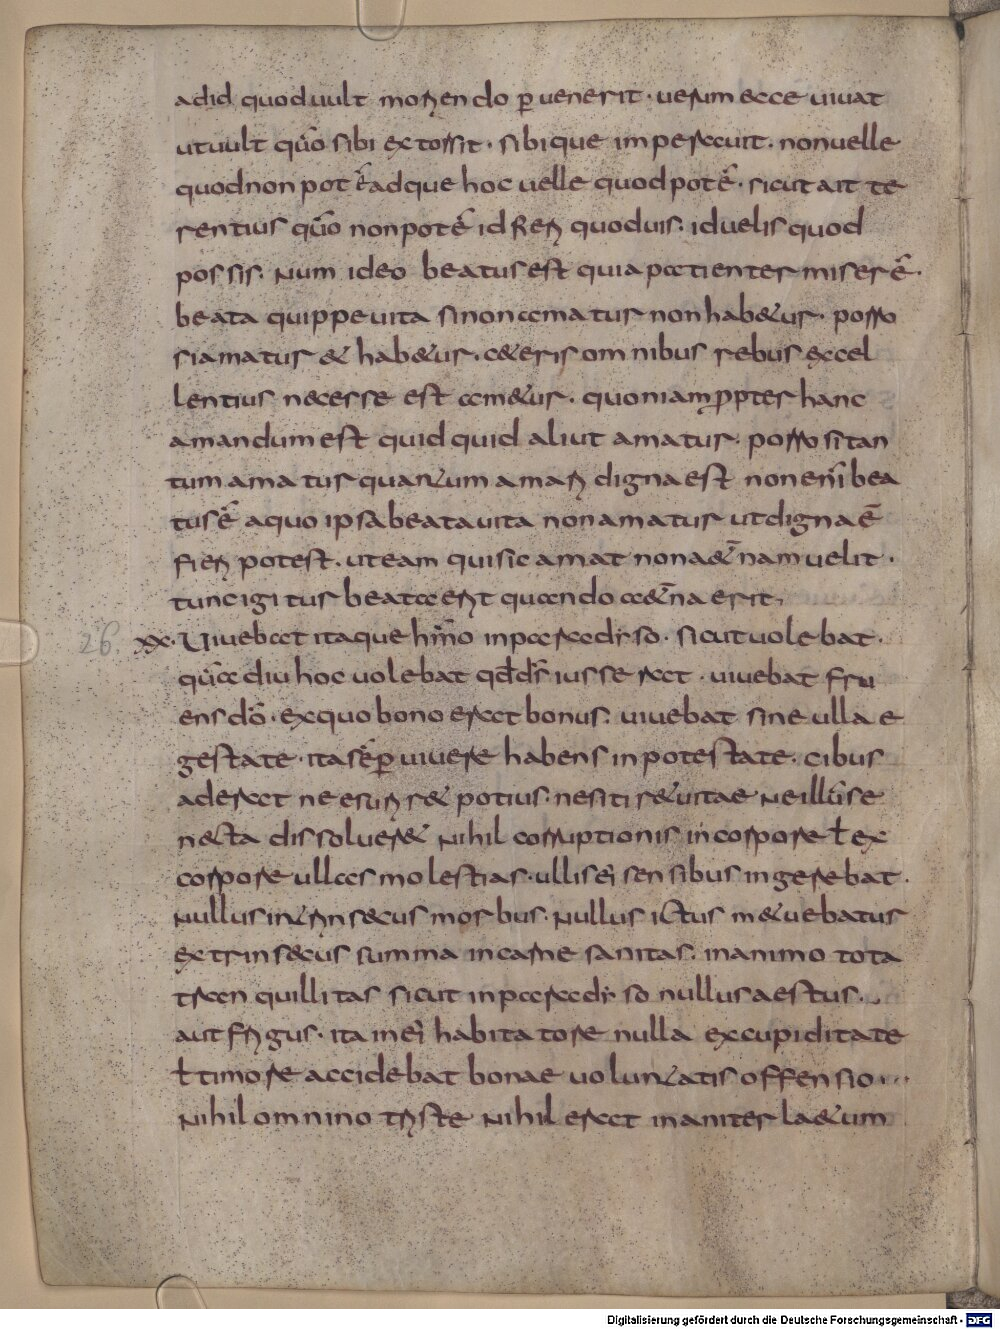 adid quoduult moriendo ꝑuenerit · uerum ecce uiuat
utuult qūo sibi extorsit · sibique imperauit · nonuelle
quodnon potē adque hoc uelle quodpotē · sicut ait te
rentius qūo nonpotē id fieri quoduis · iduelis quod
possis · Num ideo beatusest quia patienter miser ē ·
beata quippeuita sinonamatur nonhab&ur · porro
siamatur & hab&ur · c&eris omnibus rebus excel
lentius necesse est am&ur · quoniam ꝓpter hanc
amandumest quidquid aliut amatur · porro sitan
tum amatur quantum amari dignaest non enī bea
tus ē aquo ipsabeatauita nonamatur utdigna ē
fieri potest · uteam quisic amat nona&̄nam uelit ·
tuncigitur beata erit quando a&̄na erit ·
26
xx · Uiuebat itaque hōmo inparadiso · sicut uolebat ·
qūadiu hoc uolebat qđ dš iusserat · uiuebat fru
ens dō · exquo bono erat bonus · uiuebat sine ulla e
gestate · ita sēꝑ uiuere habens inpotestate · cibus
aderat ne esurir& potius · nesitir& uitae Ne illūse
necta dissoluer& Nihil corruptionis incorpore ł ex
corpore ullas molestias · ullis ei sensibus ingerebat ·
Nullus intrinsecus morbus · Nullus ictus m&uebatur
extrinsecus summa incarne sanitas · inanimo tota
tranquillitas sicut inparadiso nullus aestus ·
aut frigus · ita inei habitatore nulla excupiditate
ł timore accidebat bonae uoluntatis offensio ···
Nihil omnino triste Nihil erat inaniter la&um
Digitalisierung gefördert durch die Deutsche Forschungsgemeinschaft - DFG